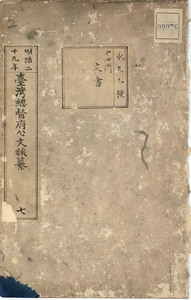 明治二
十九年
臺灣總督府公文類纂
七
永久乙種
文書
00076